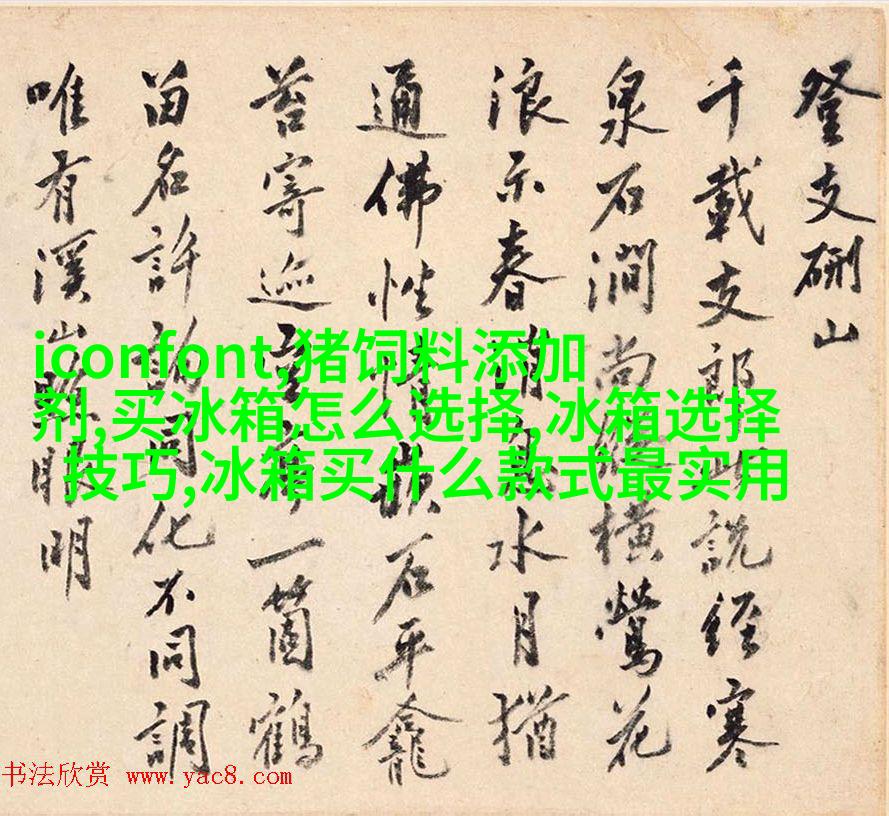 登支硎山
千載支郎此說經寒
泉石澗尚橫鶯花
浪示春消息水月猶
通佛性情欹石平龕
苔寄迹一箇鶴
留名許詢同化不同調
唯有溪山照眼明
iconfont,猪饲料添加
剂,买冰箱怎么选择,冰箱选择
技巧,冰箱买什么款式最实用
书法欣赏 www.yac8.com